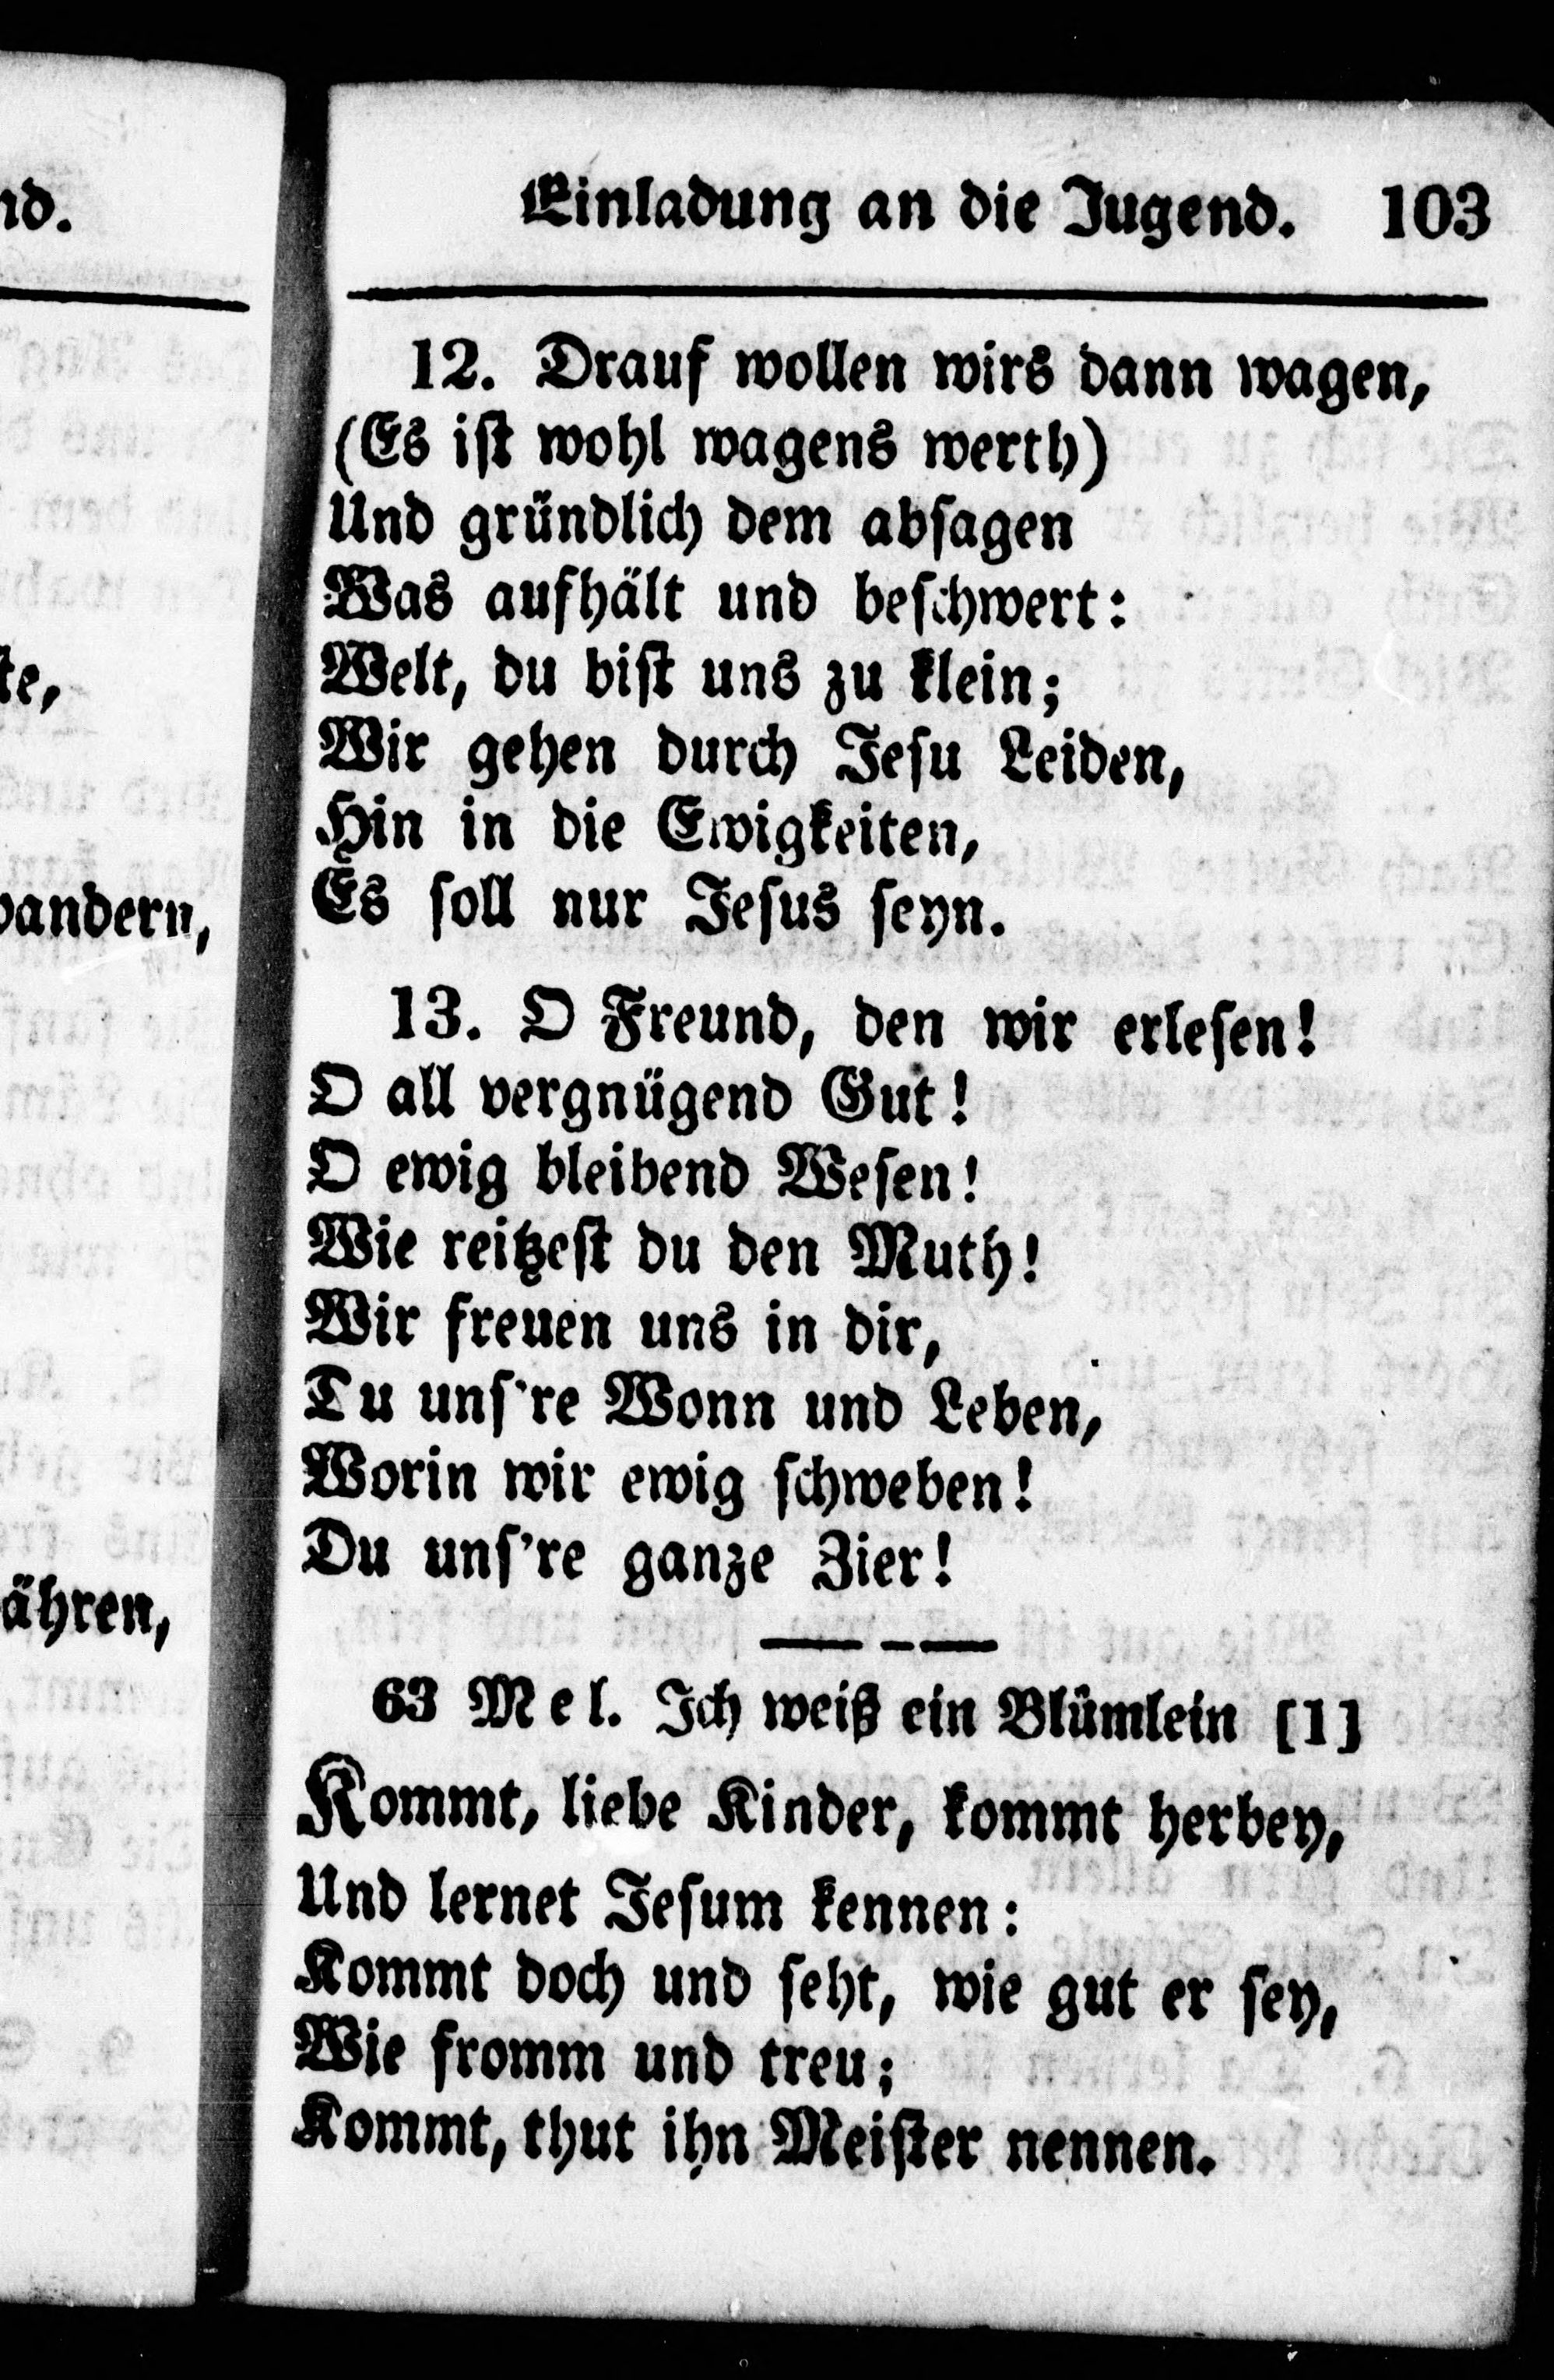 nd.
te,
wandern,
ähren,
Einladung an die Jugend. 103
12. Drauf wollen wirs dann wagen,
(Es ist wohl wagens werth)
Und gründlich dem absagen
Was aufhält und beschwert:
Welt, du bist uns zu klein;
Wir gehen durch Jesu Leiden,
Hin in die Ewigkeiten,
Es soll nur Jesus seyn.
13. O Freund, den wir erlesen!
O all vergnügend Gut!
O ewig bleibend Wesen!
Wie reitzest du den Muth!
Wir freuen uns in dir,
Du uns're Wonn und Leben,
Worin wir ewig schweben!
Du uns're ganze Zier!
63 Mel. Ich weiß ein Blümlein [1]
Kommt, liebe Kinder, kommt herbey,
Und lernet Jesum kennen:
Kommt doch und seht, wie gut er sey,
Wie fromm und treu;
Kommt, thut ihn Meister nennen.